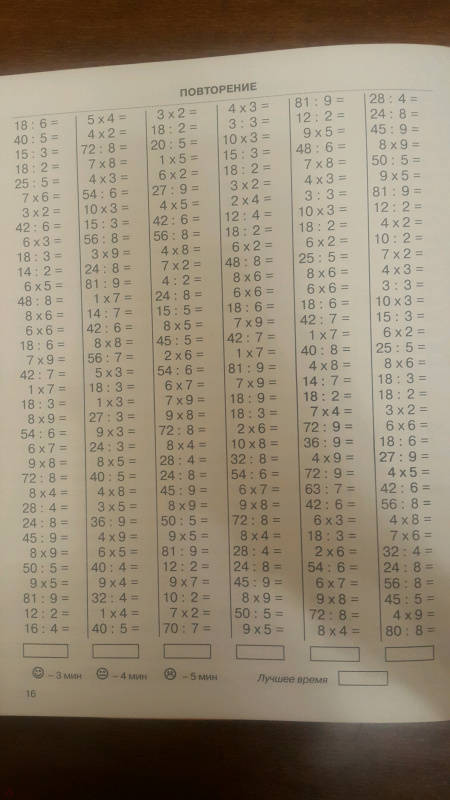 ПОВТОРЕНИЕ
18 : 6 =
40 : 5 =
15 : 3 =
18 : 2 =
25 : 5 =
7 x 6 =
3 x 2 =
42 : 6 =
6 x 3 =
18 : 3 =
14 : 2 =
6 x 5 =
48 : 8 =
8 x 6 =
6 x 6 =
18 : 6 =
7 x 9 =
42 : 7 =
1 x 7 =
18 : 3 =
8 x 9 =
54 : 6 =
6 x 7 =
9 x 8 =
72 : 8 =
8 x 4 =
28 : 4 =
24 : 8 =
45 : 9 =
8 x 9 =
50 : 5 =
9 x 5 =
81 : 9 =
12 : 2 =
16 : 4 =
5 x 4 =
4 x 2 =
72 : 8 =
7 x 8 =
4 x 3 =
54 : 6 =
10 x 3 =
15 : 3 =
56 : 8 =
3 x 9 =
24 : 8 =
81 : 9 =
1 x 7 =
14 : 7 =
42 : 6 =
8 x 8 =
56 : 7 =
5 x 3 =
18 : 3 =
1 x 3 =
27 : 3 =
9 x 3 =
24 : 3 =
8 x 5 =
40 : 5 =
4 x 8 =
3 x 5 =
36 : 9 =
4 x 9 =
6 x 5 =
40 : 4 =
9 x 4 =
32 : 4 =
1 x 4 =
40 : 5 =
3 x 2 =
18 : 2 =
20 : 5 =
1 x 5 =
6 x 2 =
27 : 9 =
4 x 5 =
42 : 6 =
56 : 8 =
4 x 8 =
7 x 2 =
4 : 2 =
24 : 8 =
15 : 5 =
8 x 5 =
45 : 5 =
2 x 6 =
54 : 6 =
6 x 7 =
7 x 9 =
9 x 8 =
72 : 8 =
8 x 4 =
28 : 4 =
24 : 8 =
45 : 9 =
8 x 9 =
50 : 5 =
9 x 5 =
81 : 9 =
12 : 2 =
9 x 7 =
10 : 2 =
7 x 2 =
70 : 7 =
4 x 3 =
3 : 3 =
10 x 3 =
15 : 3 =
18 : 2 =
3 x 2 =
2 x 4 =
12 : 4 =
18 : 2 =
6 x 2 =
48 : 8 =
8 x 6 =
6 x 6 =
18 : 6 =
7 x 9 =
42 : 7 =
1 x 7 =
81 : 9 =
7 x 9 =
18 : 9 =
18 : 3 =
2 x 6 =
10 x 8 =
32 : 8 =
54 : 6 =
6 x 7 =
9 x 8 =
72 : 8 =
8 x 4 =
28 : 4 =
24 : 8 =
45 : 9 =
8 x 9 =
50 : 5 =
9 x 5 =
81 : 9 =
12 : 2 =
9 x 5 =
48 : 6 =
7 x 8 =
4 x 3 =
3 : 3 =
10 x 3 =
18 : 2 =
6 x 2 =
25 : 5 =
8 x 6 =
6 x 6 =
18 : 6 =
42 : 7 =
1 x 7 =
40 : 8 =
4 x 8 =
14 : 7 =
18 : 2 =
7 x 4 =
72 : 9 =
36 : 9 =
4 x 9 =
72 : 9 =
63 : 7 =
42 : 6 =
6 x 3 =
18 : 3 =
2 x 6 =
54 : 6 =
6 x 7 =
9 x 8 =
72 : 8 =
8 x 4 =
28 : 4 =
24 : 8 =
45 : 9 =
8 x 9 =
50 : 5 =
9 x 5 =
81 : 9 =
12 : 2 =
4 x 2 =
10 : 2 =
7 x 2 =
4 x 3 =
3 : 3 =
10 x 3 =
15 : 3 =
6 x 2 =
25 : 5 =
8 x 6 =
18 : 3 =
18 : 2 =
3 x 2 =
6 x 6 =
18 : 6 =
27 : 9 =
4 x 5 =
42 : 6 =
56 : 8 =
4 x 8 =
7 x 6 =
32 : 4 =
24 : 8 =
56 : 8 =
45 : 5 =
4 x 9 =
80 : 8 =
– 3 мин – 4 мин – 5 мин Лучшее время
16